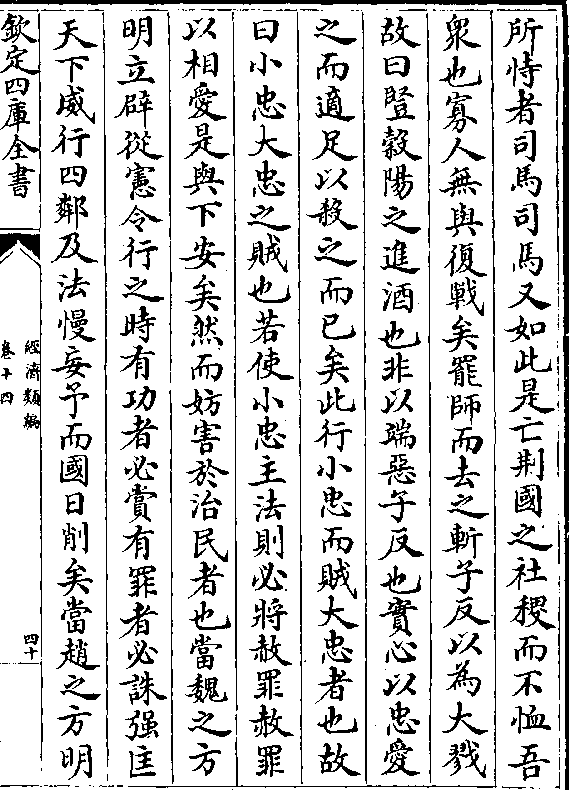 所恃者司馬司馬又如此是亡荆國之社稷而不恤吾
衆也寡人無與復戰矣罷師而去之斬子反以為大戮
故曰豎穀陽之進酒也非以端惡子反也實心以忠愛
之而適足以殺之而已矣此行小忠而賊大忠者也故
曰小忠大忠之賊也若使小忠主法則必將赦罪赦罪
以相愛是與下安矣然而妨害於治民者也當魏之方
明立辟從憲令行之時有功者必賞有罪者必誅强匡
天下威行四鄰及法慢妄予而國日削矣當趙之方明
欽定四庫全書
經濟類編
卷十四
四十